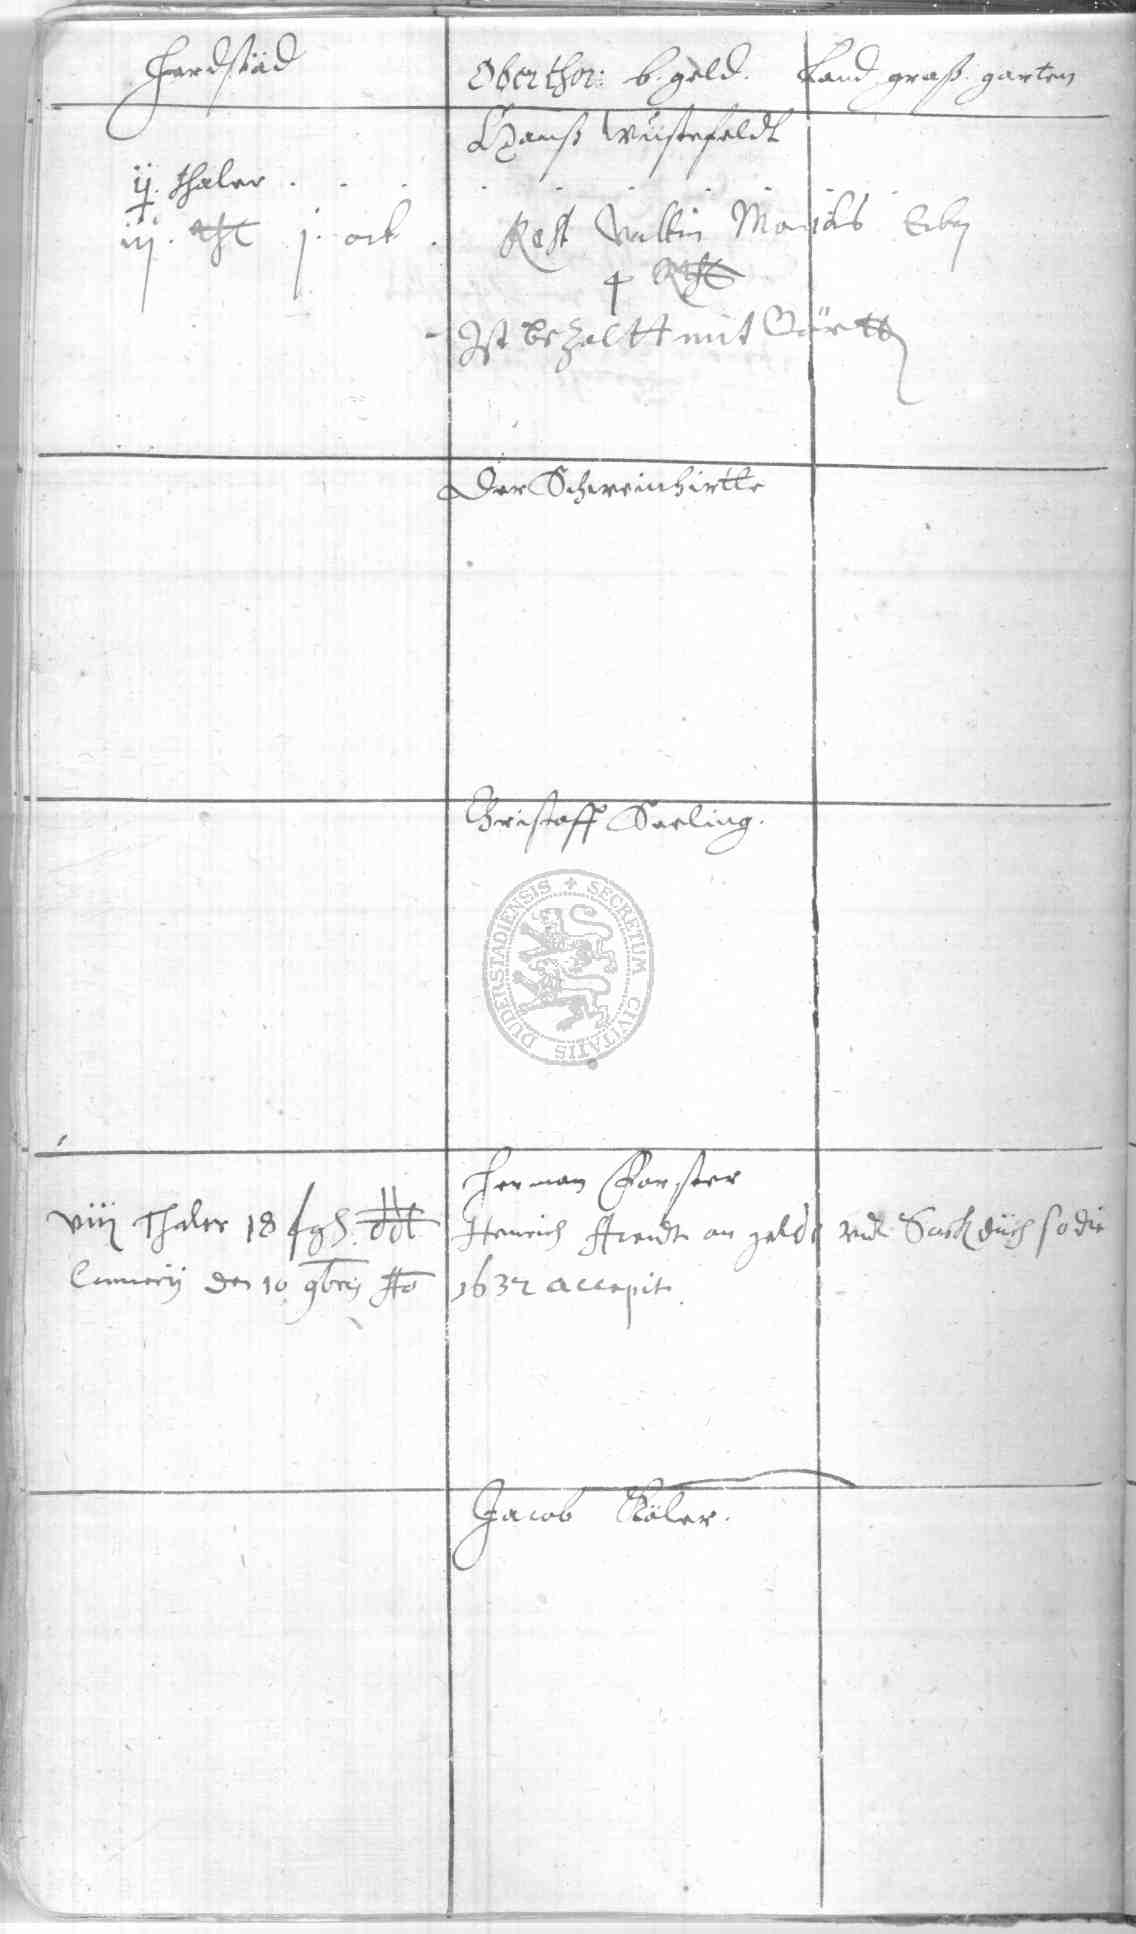 Herdstäd Oberthor: b. geld. Land graß. garten
Hanß Wüstefeldt
ij. thaler . . . . . . . .
iij. j. ort . Rest Valtin Erben
4
Ist bezaltt mit Gärtt
Der Schweinhirtte
Christoff Seeling.
DUDERSTADIENSIS + SECRETUM CIVITATIS
Herman Forster
viij Thaler 18 ßgh. Henrich Arendt an gelde vndt so die
Cemmerij den 10 9bris Ao 1632 accepit.
Jacob Köler.